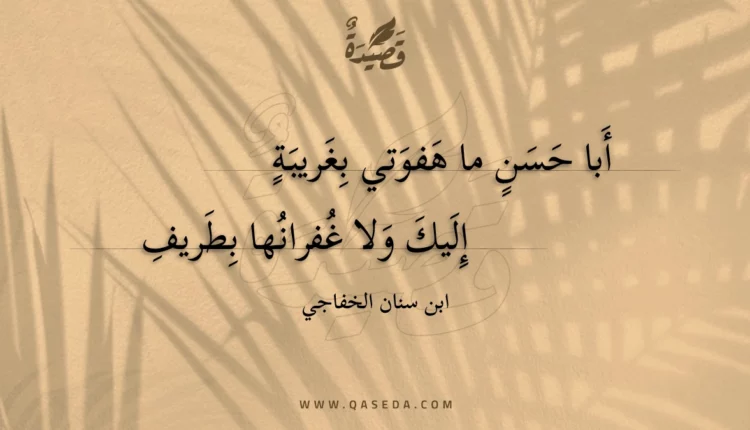 قَصِيْدَةٌ
أَبا حَسَنٍ ما هَفوَتي بِغَريبَةٍ
إِلَيكَ وَلا غُفرانُها بِطَريفِ
ابن سنان الخفاجي
WWW.QASEDA.COM